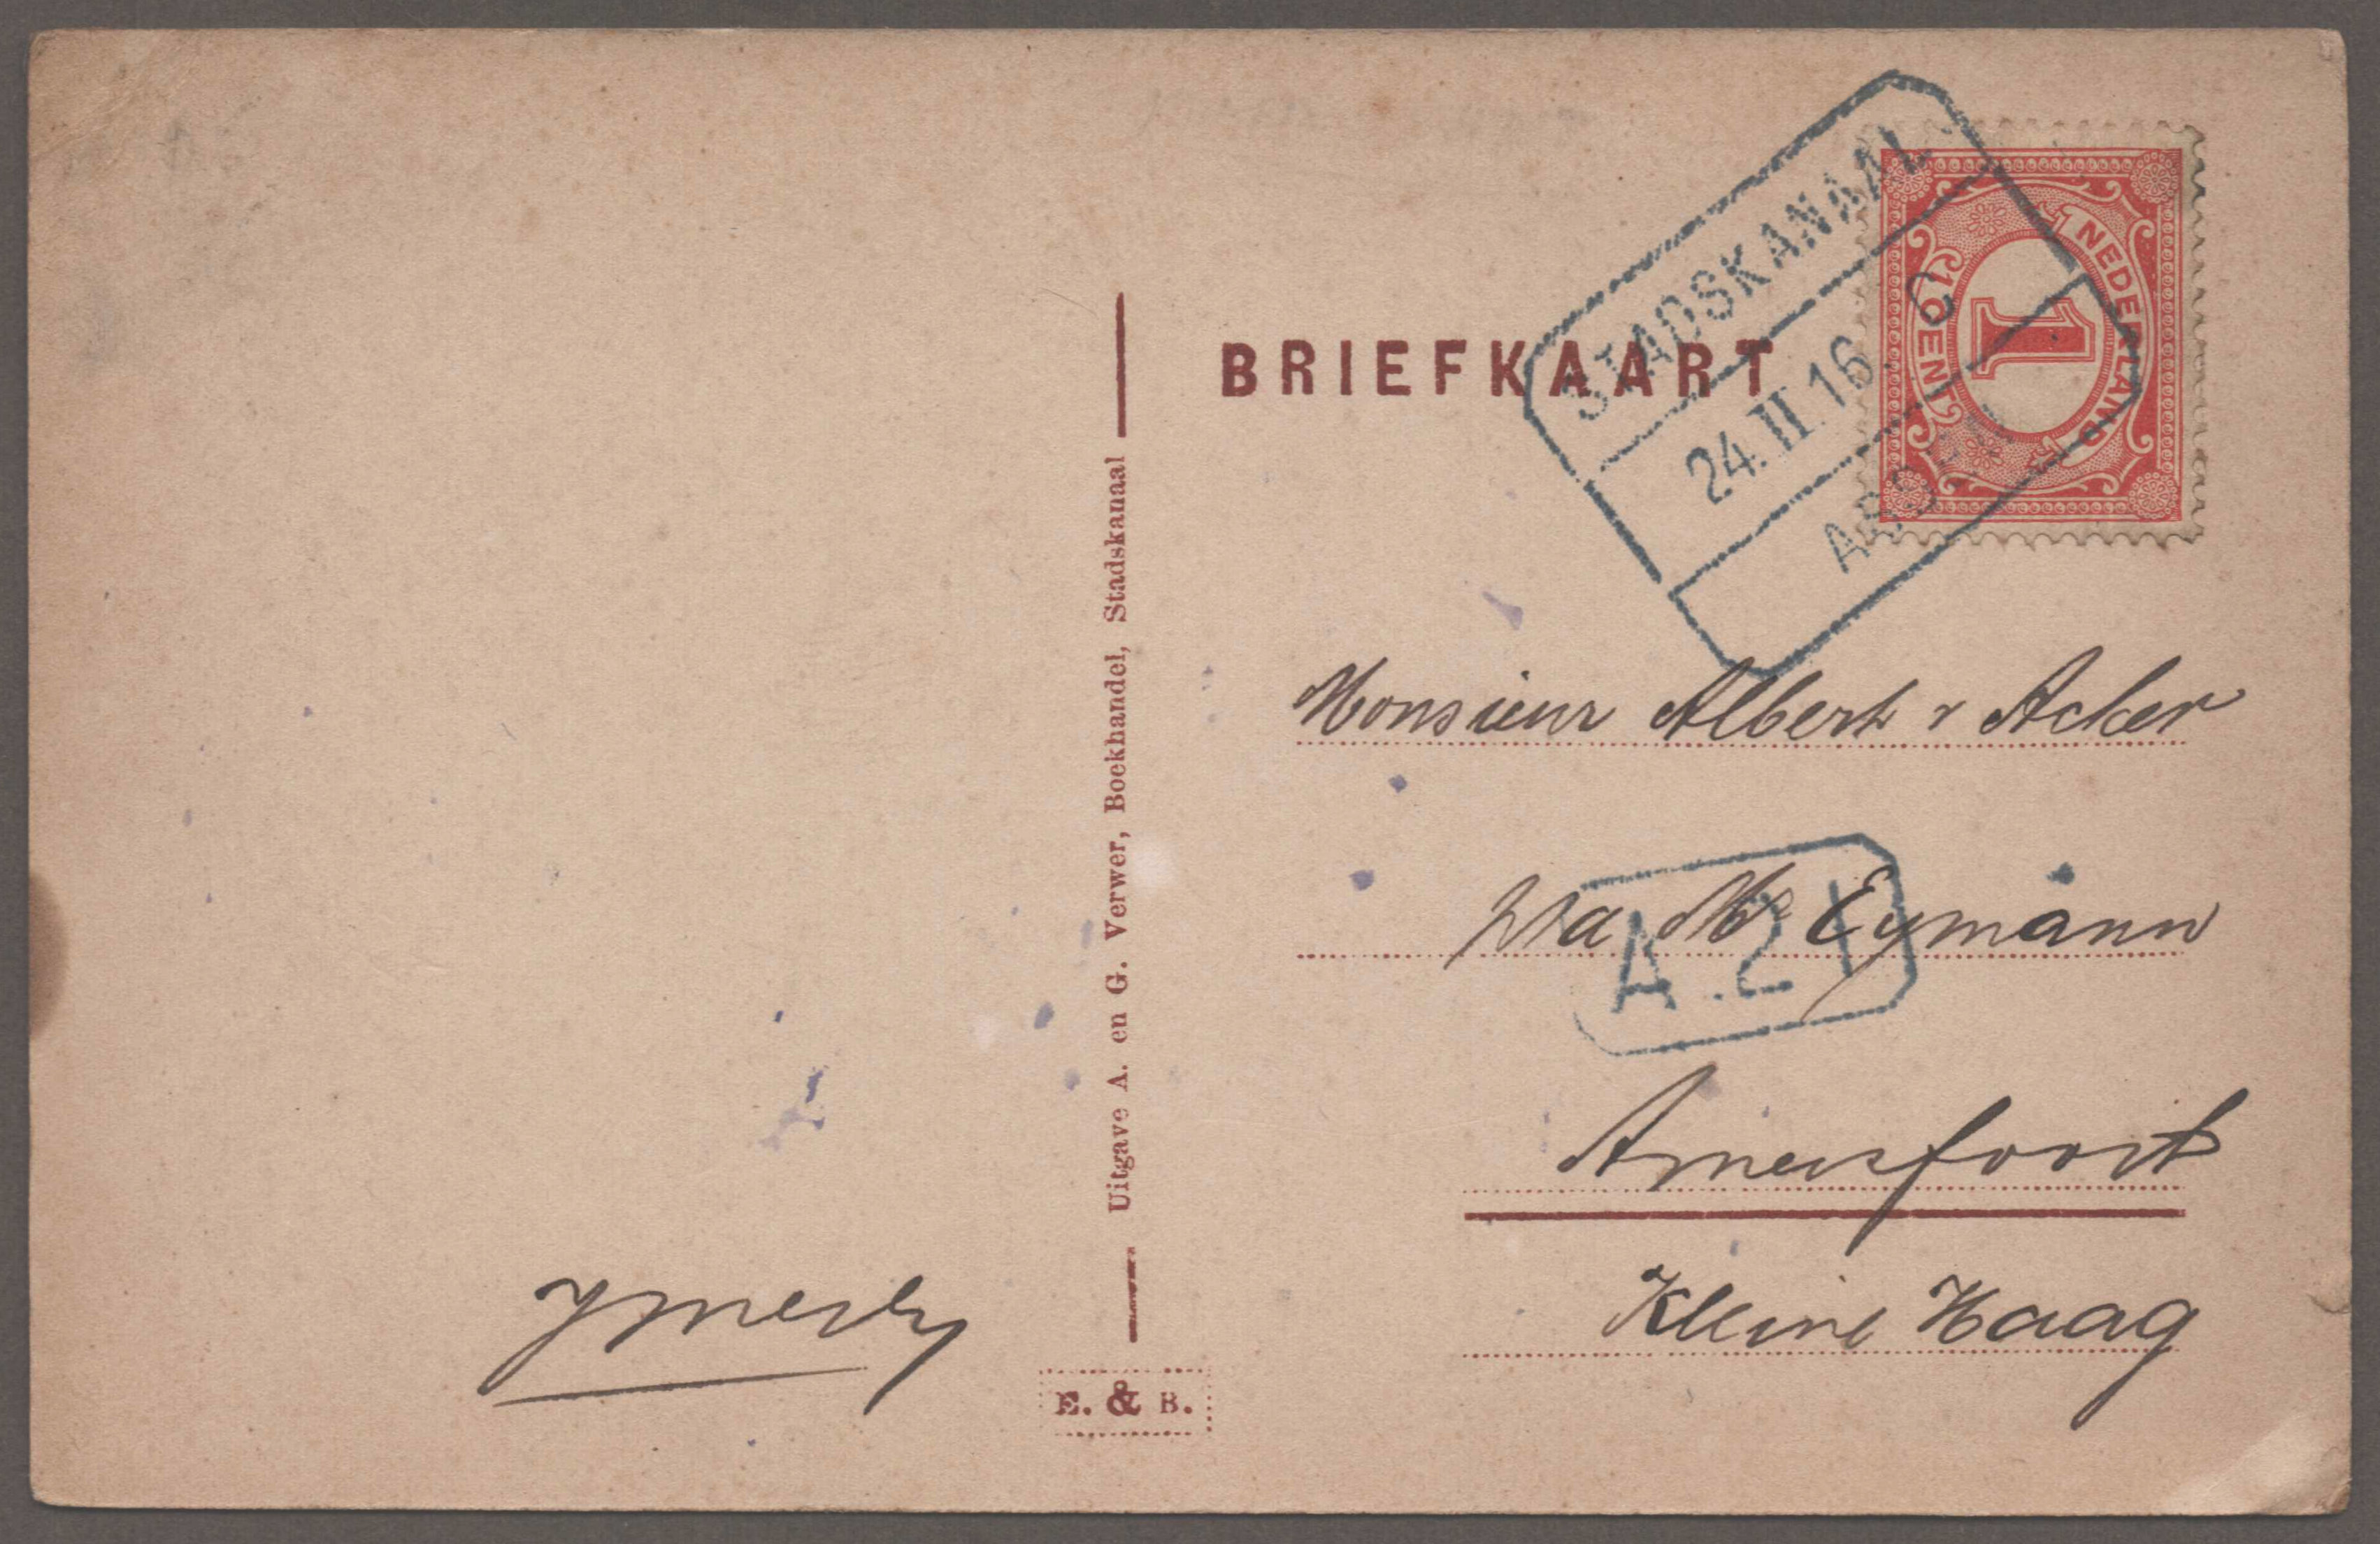 BRIEFKAART
STADSKANAAL
24.II.16. C
NEDERLAND
1
1 CENT
Monsieur Albert v Acker
p/a Mr Eymann
A.21
Amersfoort
Kleine Haag
Uitgave A. en G. Verwer, Boekhandel, Stadskanaal
E. & B.